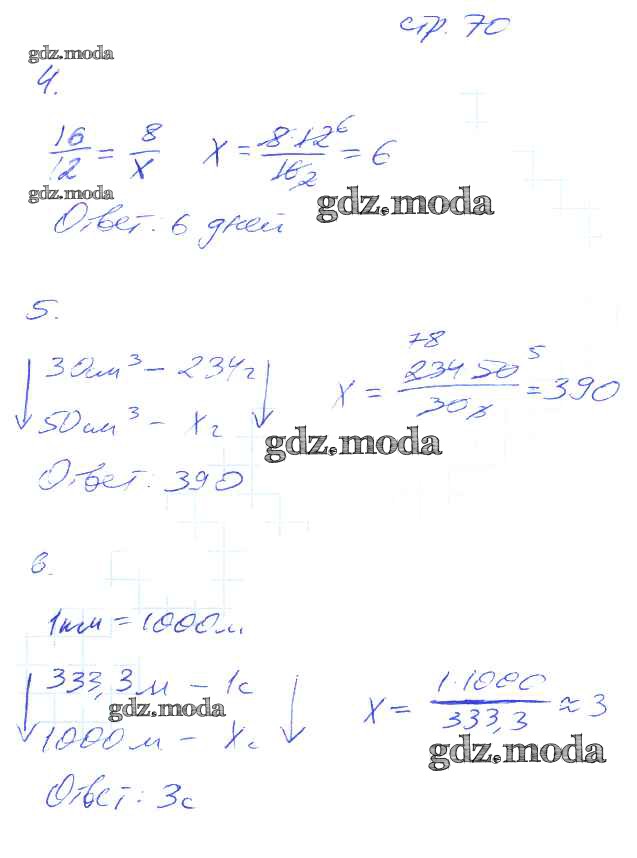 стр. 70
gdz.moda
4.
16/12 = 8/x x = 8·12 6/16 2 = 6
gdz.moda
gdz.moda
Ответ: 6 дней
5.
30см³ – 234г
50см³ – xг
x = 78 234 50 5/30 = 390
gdz.moda
Ответ: 390
6.
1км = 1000м
333,3м – 1с
gdz.moda
1000м – xс
x = 1·1000/333,3 ≈ 3
gdz.moda
Ответ: 3с